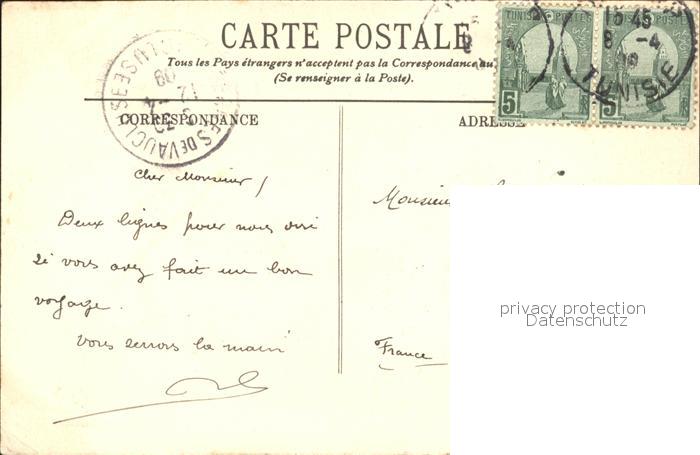 CARTE POSTALE
Tous les Pays étrangers n'acceptent pas la Correspondance au
(Se renseigner à la Poste).
CORRESPONDANCE
ADRESSE
TUNISIE POSTES
5
5
15 45
8 -4
TUNISIE
DE VAUCLUSE
12 -4
09
Cher Monsieur,
Deux lignes pour nous
si vous avez fait un bon
voyage.
Vous serrons la main
Monsieur
France
privacy protection
Datenschutz